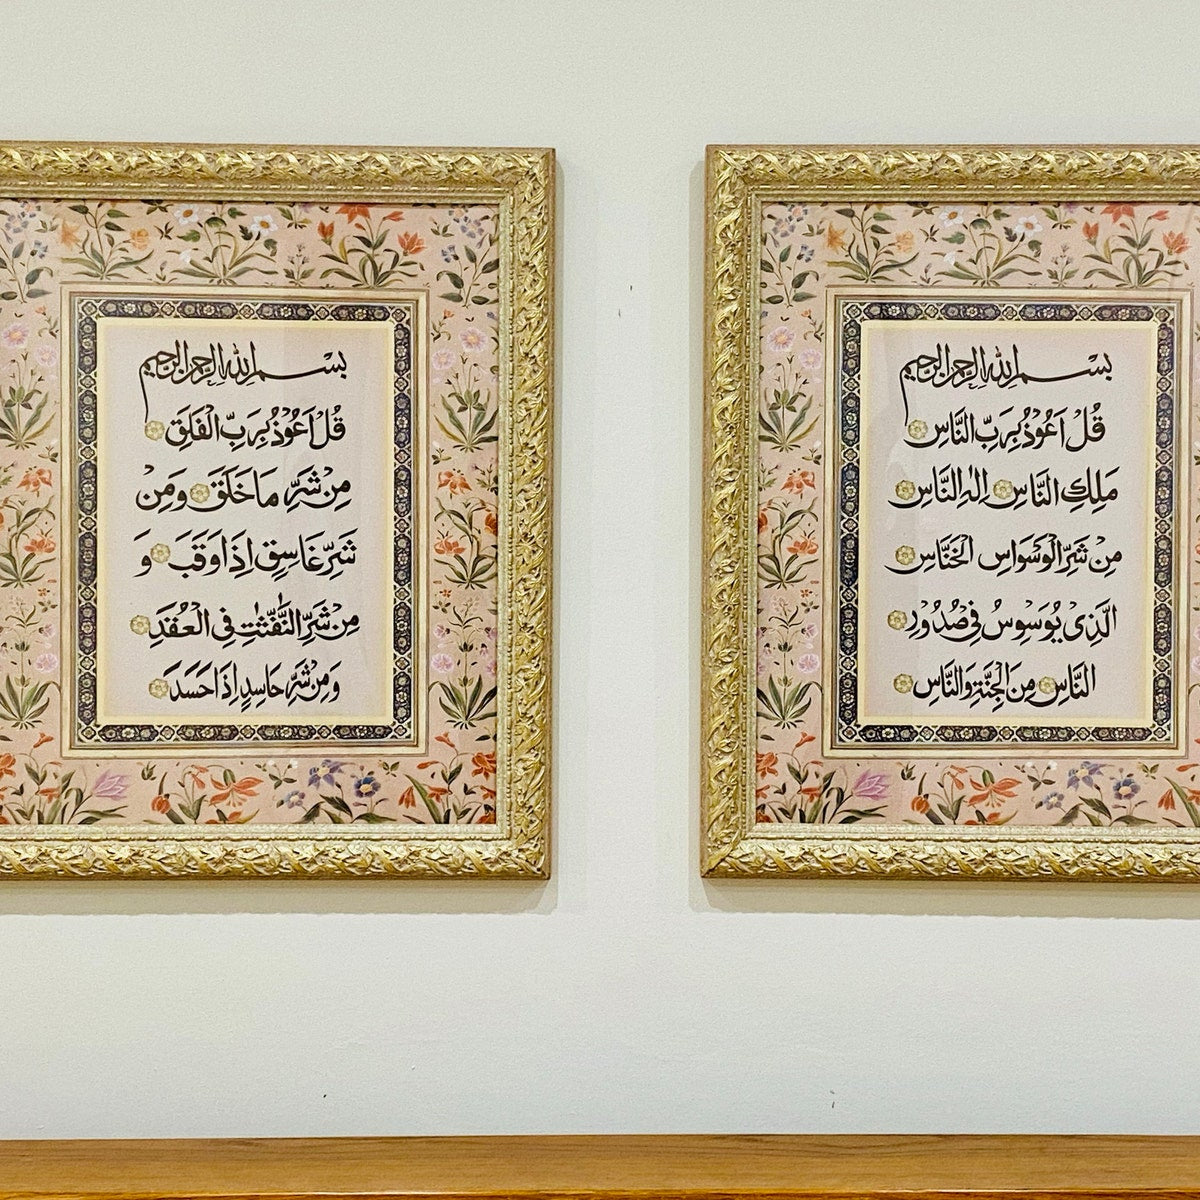 بسم الله الرحمن الرحيم
قُلْ اَعُوْذُ بِرَبِّ الْفَلَقِ
مِنْ شَرِّ مَا خَلَقَ وَمِنْ
شَرِّ غَاسِقٍ اِذَا وَقَبَ وَ
مِنْ شَرِّ النَّفّٰثٰتِ فِی الْعُقَدِ
وَمِنْ شَرِّ حَاسِدٍ اِذَا حَسَدَ
بسم الله الرحمن الرحيم
قُلْ اَعُوْذُ بِرَبِّ النَّاسِ
مَلِكِ النَّاسِ اِلٰهِ النَّاسِ
مِنْ شَرِّ الْوَسْوَاسِ الْخَنَّاسِ
الَّذِیْ یُوَسْوِسُ فِیْ صُدُوْرِ
النَّاسِ مِنَ الْجِنَّةِ وَالنَّاسِ